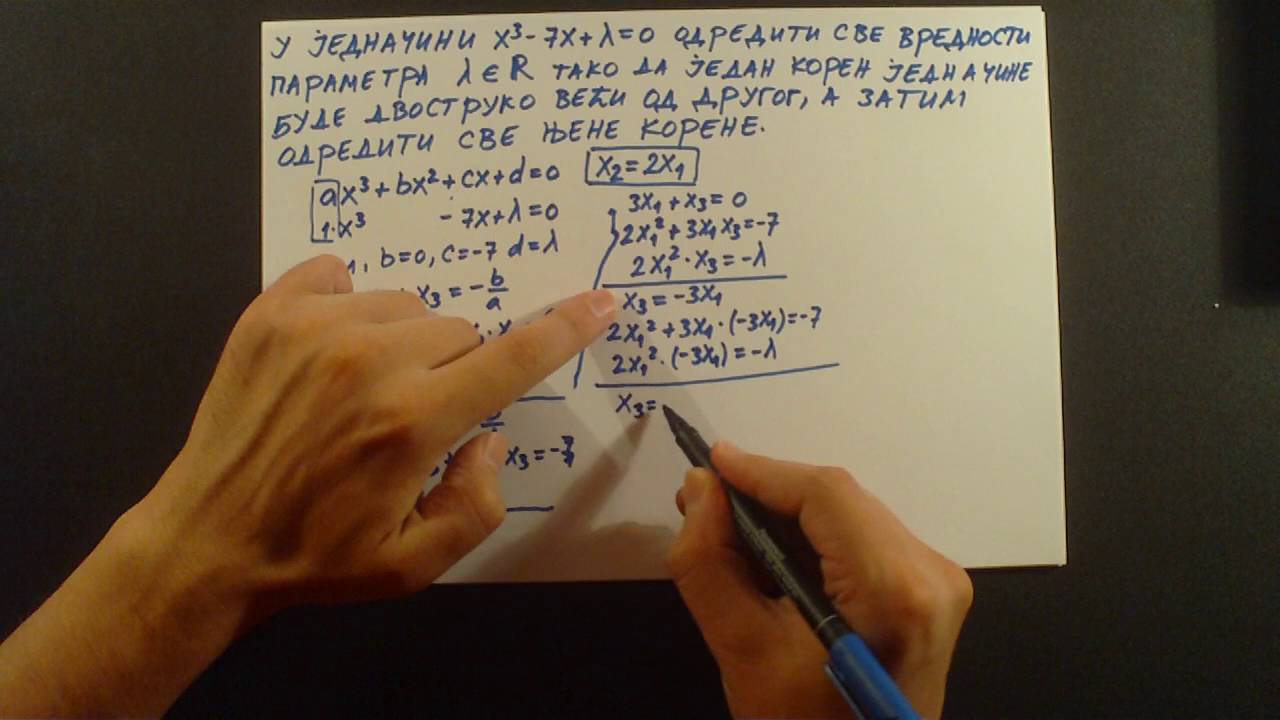 У ЈЕДНАЧИНИ x³ - 7x + λ = 0 ОДРЕДИТИ СВЕ ВРЕДНОСТИ
ПАРАМЕТРА λ ∈ R ТАКО ДА ЈЕДАН КОРЕН ЈЕДНАЧИНЕ
БУДЕ ДВОСТРУКО ВЕЋИ ОД ДРУГОГ, А ЗАТИМ
ОДРЕДИТИ СВЕ ЊЕНЕ КОРЕНЕ.
ax³ + bx² + cx + d = 0
1·x³ - 7x + λ = 0
1, b=0, c=-7 d=λ
x₃ = -b/a
x₃ = -7/1
x₂ = 2x₁
3x₁ + x₃ = 0
2x₁² + 3x₁x₃ = -7
2x₁² · x₃ = -λ
x₃ = -3x₁
2x₁² + 3x₁ · (-3x₁) = -7
2x₁² · (-3x₁) = -λ
x₃ =